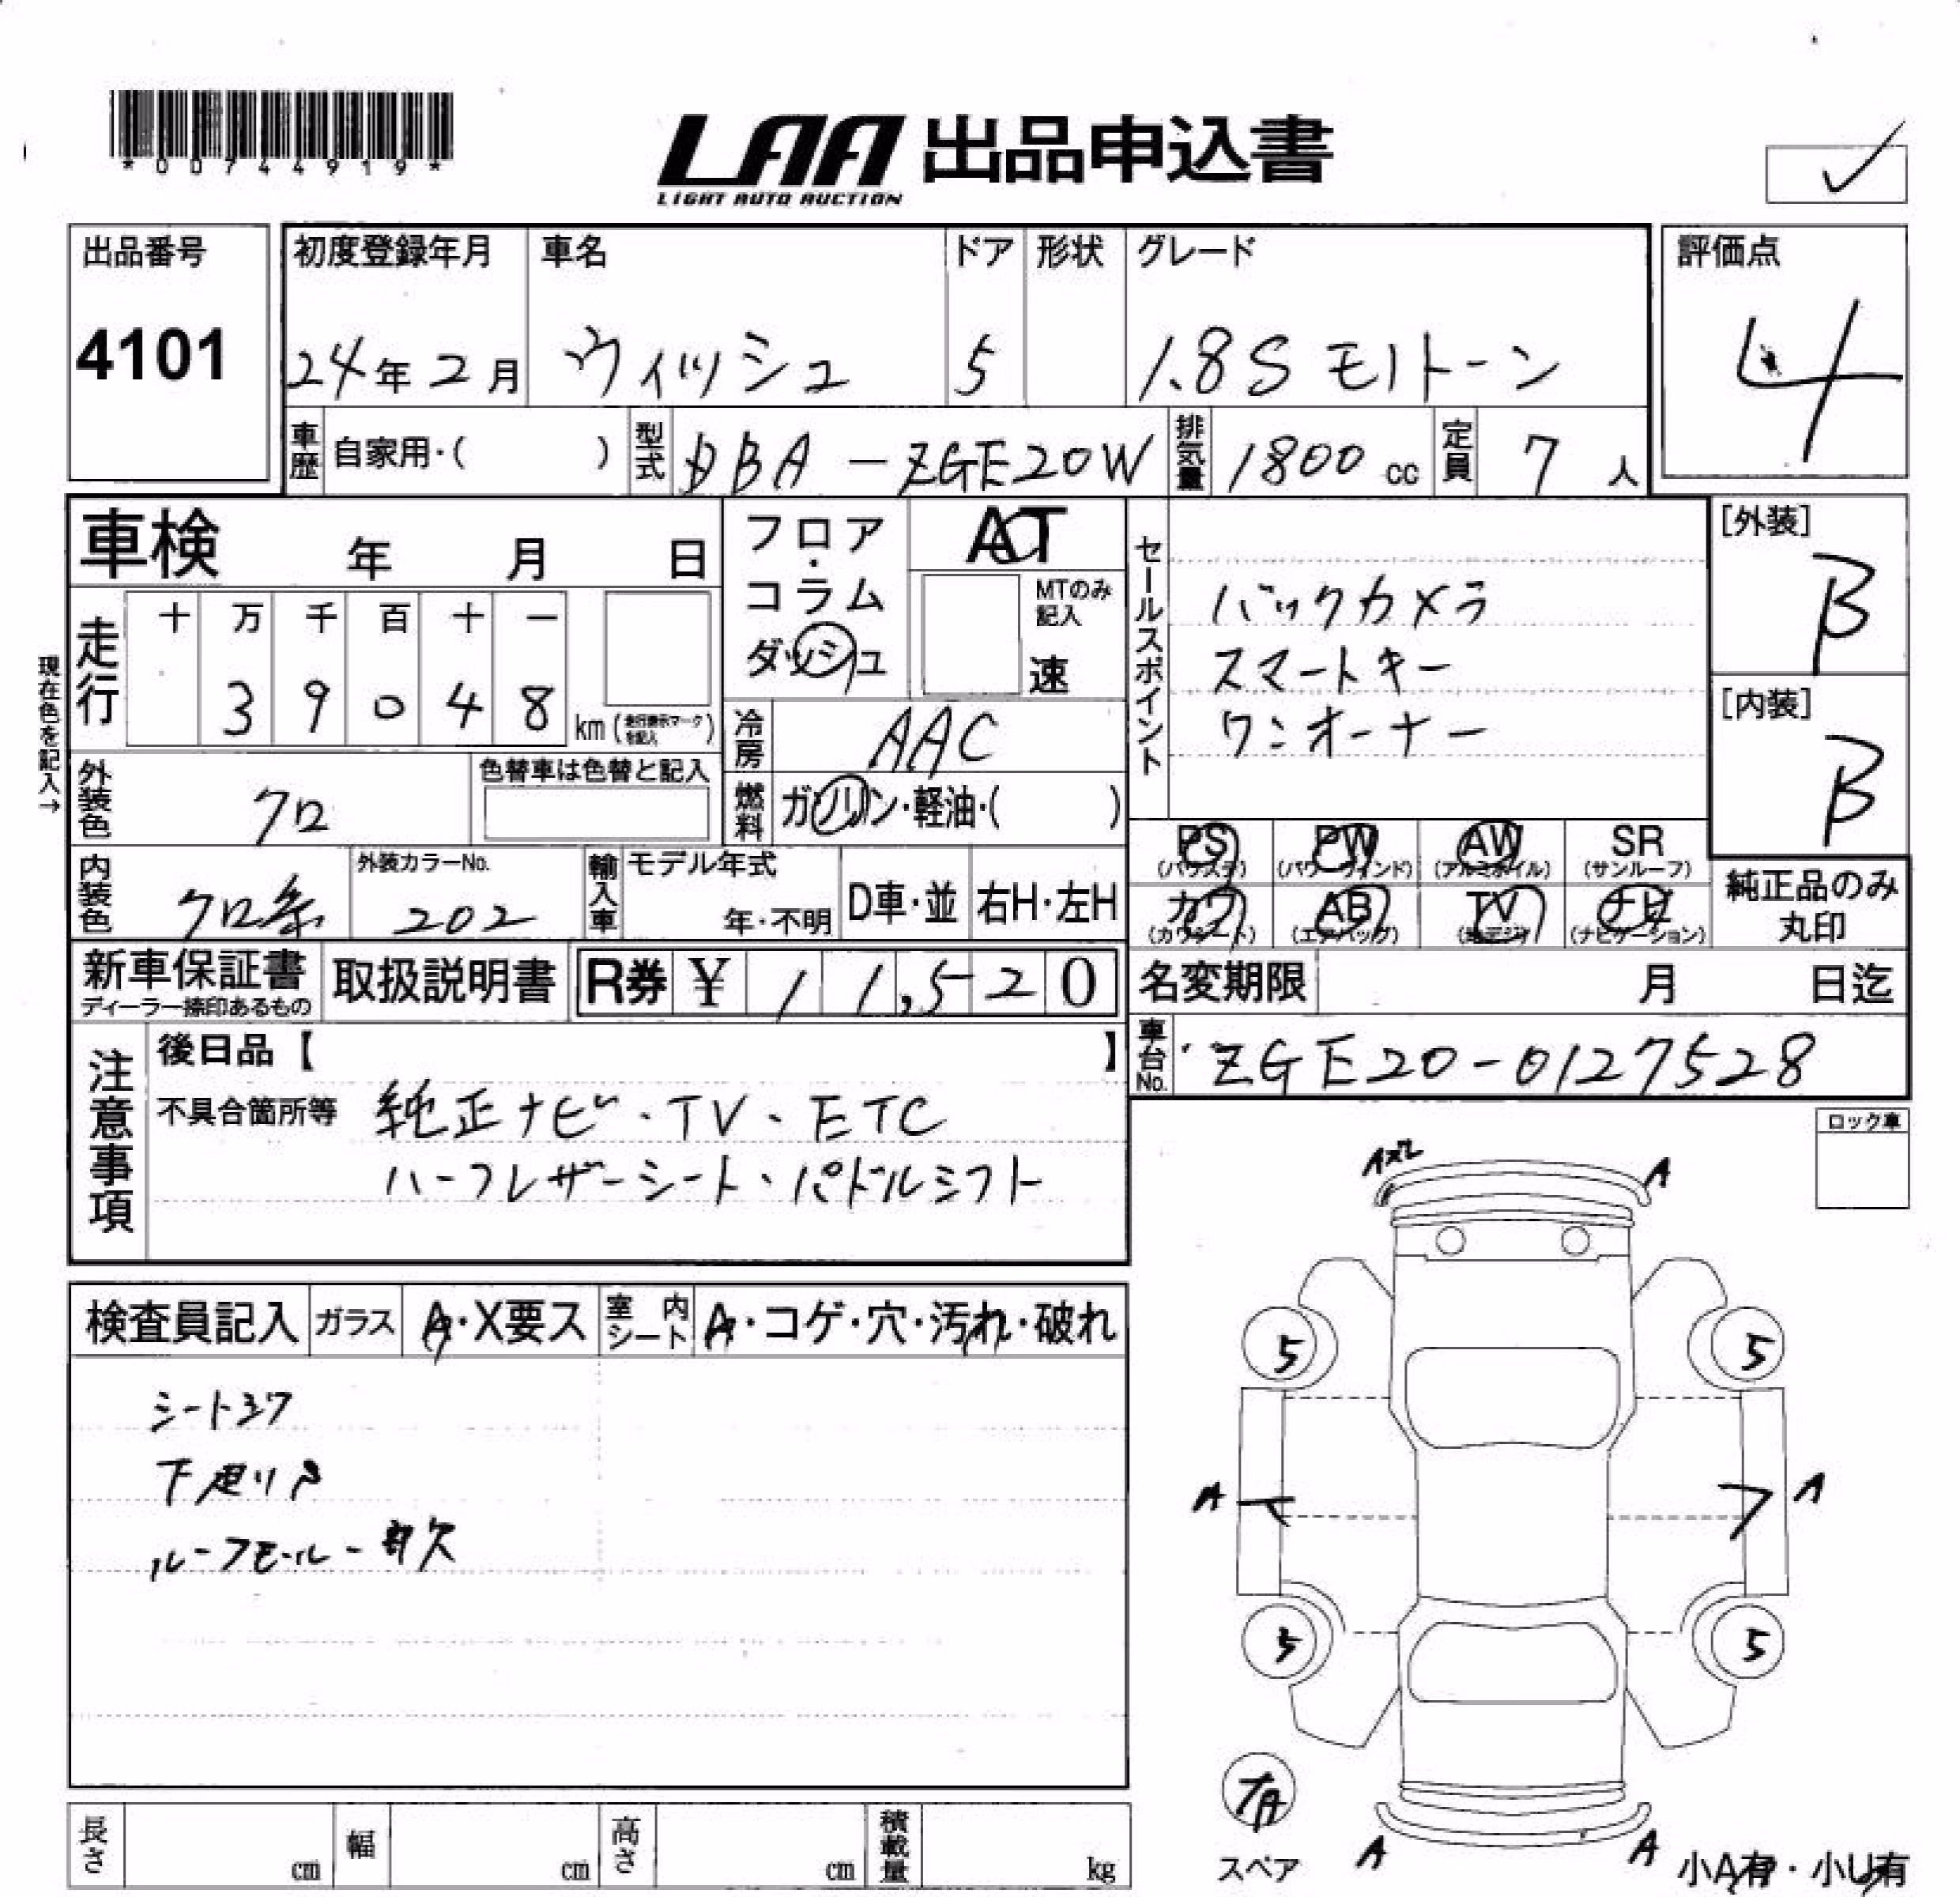 *00744919*
LAA 出品申込書
LIGHT AUTO AUCTION
出品番号
4101
初度登録年月
24年2月
車名
ウィッシュ
ドア
5
形状
グレード
1.8S モノトーン
評価点
4
車歴 自家用・( )
型式 DBA-ZGE20W
排気量 1800 cc
定員 7 人
車検 年 月 日
フロア・コラム
ダッシュ
AT
MTのみ記入
速
セールスポイント
バックカメラ
スマートキー
ワンオーナー
[外装]
B
[内装]
B
現在色を記入→
走行
十 万 千 百 十 一
3 9 0 4 8 km(走行表示マークを記入)
冷房 AAC
外装色 クロ
色替車は色替と記入
燃料 ガソリン・軽油・( )
内装色 クロ系
外装カラーNo.
202
輸入車
モデル年式
年・不明
D車・並
右H・左H
PS PW AW SR
(パワステ) (パワーウィンド) (アルミホイル) (サンルーフ)
カワ AB TV ナビ
(カワシート) (エアバッグ) (地デジ) (ナビゲーション)
純正品のみ
丸印
新車保証書
ディーラー捺印あるもの
取扱説明書
R券 ¥ 11,520
名変期限 月 日迄
車台No. ZGE20-0127528
注意事項
後日品【 】
不具合箇所等 純正ナビ・TV・ETC
ハーフレザーシート・パドルシフト
ロック車
検査員記入
ガラス A・X要ス
室内シート A・コゲ・穴・汚れ・破れ
下廻り
ルーフモール一部欠
A
5 5
A A
5 5
有
スペア
A A
小A有・小U有
長さ cm
幅 cm
高さ cm
積載量 kg